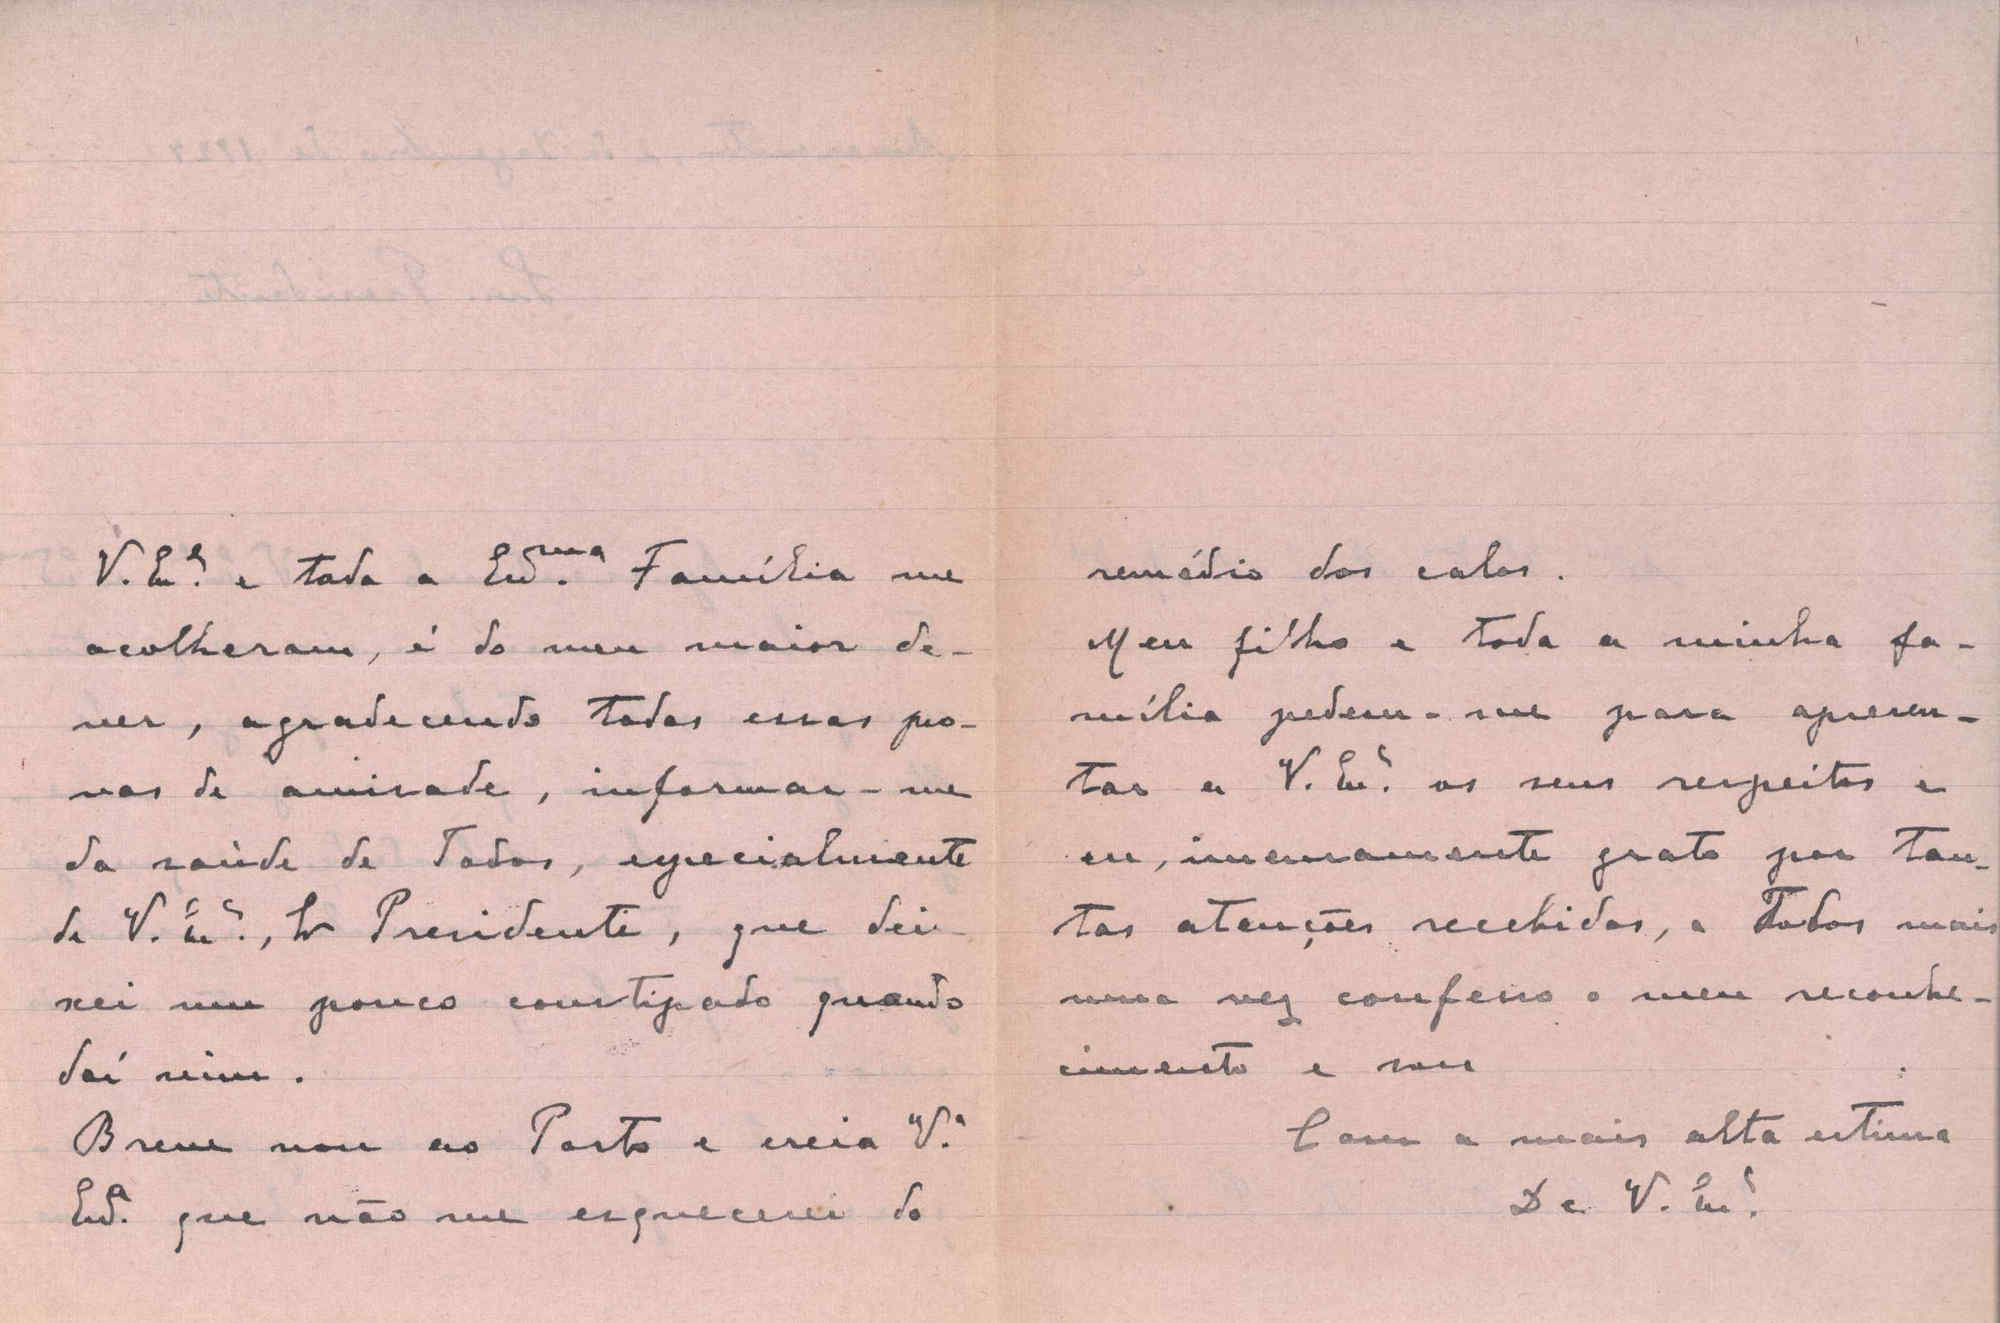 V. Ex.ª e toda a Ex.ma Família me
acolheram, é do meu maior de-
ver, agradecendo todas essas pro-
vas de amisade, informar-me
da saúde de Todos, especialmente
de V. Ex.ª, Sr Presidente, que dei-
xei um pouco constipado quando
daí vim.
Breve vou ao Porto e creia V.ª
Ex.ª que não me esquecerei do
remédio dos calos.
Meu filho e toda a minha fa-
mília pedem-me para apresen-
tar a V. Ex.ª os seus respeitos e
eu, imensamente grato por tan-
tas atenções recebidas, a Todos mais
uma vez confesso o meu reconhe-
cimento e sou
Com a mais alta estima
De V. Ex.ª